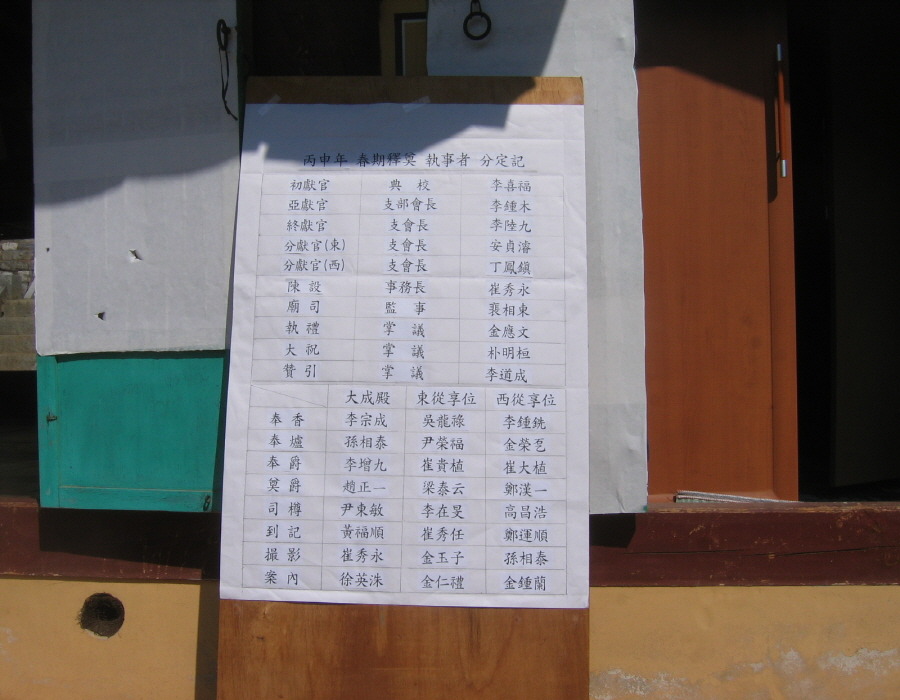 丙申年 春期釋奠 執事者 分定記
初獻官 典 校 李喜福
亞獻官 支部會長 李鍾木
終獻官 支會長 李陸九
分獻官(東) 支會長 安貞濬
分獻官(西) 支會長 丁鳳鎭
陳 設 事務長 崔秀永
廟 司 監 事 裵相東
執 禮 掌 議 金應文
大 祝 掌 議 朴明桓
贊 引 掌 議 李道成
大成殿 東從享位 西從享位
奉 香 李宗成 吳龍祿 李鍾銑
奉 爐 孫相泰 尹榮福 金榮
奉 爵 李增九 崔貴植 崔大植
奠 爵 趙正一 梁泰云 鄭漢一
司 樽 尹東敏 李在旻 高昌浩
到 記 黃福順 崔秀任 鄭運順
撮 影 崔秀永 金玉子 孫相泰
案 內 徐英洙 金仁禮 金鍾蘭